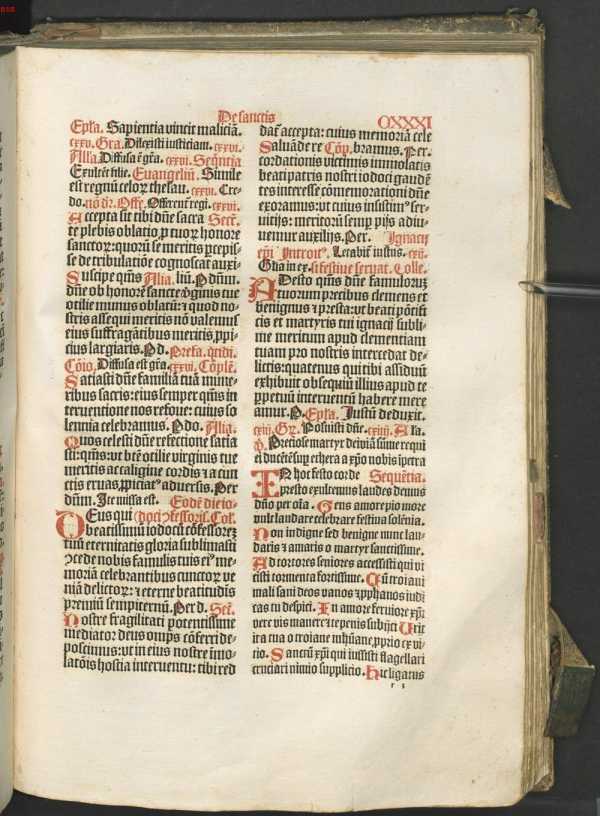 De sanctis
CXXXI
Epła. Sapientia vincit maliciā.
cxxv. Gra. Dilexisti iusticiam. cxxvi.
Alła. Diffusa ē gr̄a. cxxvi. Sequētia
Exultēt filie. Euangeliū. Simile
est regnū celoꝝ thesau. cxxvi. Cre-
do. nō dr̄. Offe. Offerent̄ regi. cxxvi.
Accepta sit tibi dn̄e sacra Secr̄.
te plebis oblatio p tuoꝝ honore
sanctoꝝ: quorū se meritis pcepis-
se de tribulatiōe cognoscat auxi-
Suscipe qm̄s Alia. liū. P dn̄m.
dn̄e ob honorē sancte ōginis tue
otilie munus oblatū: ⁊ quod no-
stris assequi meritis nō valemus
eius suffragātibus meritis, ppi-
cius largiaris. Pd. Prefa. qtidi.
Cōio. Diffusa est gr̄a. cxxvi. Cōplē.
Satiasti dn̄e familiā tuā mune-
ribus sacris: eius semper qm̄s in
teruentione nos refoue: cuius so-
lennia celebramus. P do. Alia.
Quos celesti dn̄e refectione satia
sti: qm̄s: vt bt̄e otilie virginis tue
meritis a caligine cordis ⁊ a cun
ctis eruas, ppiciat᷑ aduersis. Per
dn̄m. Ite missa est. Eodē die io-
Deus qui (doci ꝯfessoris. Col.
beatissimū iodocū cōfessorē
tuū eternitatis gloria sublimasti
ꝯcede nobis famulis tuis eiꝰ me-
moriā celebrantibus cunctoꝝ ve
niā delictoꝝ: ⁊ eterne beatitudīs
premiū sempiternū. Per d. Secr̄.
Nostre fragilitati potentissime
mediator deus om̄ps cōferri de-
poscimus: vt in eius nostre imo-
latōis hostia interuentu: tibi red
dat᷑ accepta: cuius memoriā cele
Salua d̄e re Cōp. bramus. Per.
cordationis victimis immolatis
beati patris nostri iodoci gaudē
tes interesse cōmemorationi dn̄e
exoramus: vt cuius insistim̄ꝰ ser-
uitijs: meritorū semp pijs adiu-
uemur auxilijs. Per. Ignacij
epī Introit᷑. Letabit᷑ iustus. cxij.
Glīa in ex. si festiue seruat. Colle.
Adesto qm̄s dn̄e famuloꝝ
tuorum precibus clemens et
benignus ⁊ presta: vt beati pōtifi
cis et martyris tui ignacij subli-
me meritum apud clementiam
tuam pro nostris intercedat de-
lictis: quatenus qui tibi assiduū
exhibuit obsequiū illius apud te
ppetuū interuentū habere mere
amur. P. Epła. Iustū deduxit.
cxiij. Gr̄. Posuisti dn̄e. cxiiij. Ala.
Preciose martyr dei viā sūme requi
ei ducētē suꝑ ethera a xp̄o nobis īpetra
IN hoc festo corde Sequētia.
presto exultemus laudes demus
dn̄o per oīa. Gens amore pio more
nunc laudare celebrare festina solēnia.
Non indigne sed benigne nunc lau-
daris ⁊ amaris o martyr sanctissime.
Ad tortores seniores accessisti qui vi
cisti tormenta fortissime. Cū troiani
mali sani deos vanos ⁊ pphanos iudi
cas tu despici. In amore feruiore xp̄i
vere vis manere ⁊ te penis subijci Urit
ira tua o troiane inhūane, pprio ex vi-
tio. Sanctū xp̄i qui iussisti flagellari
cruciari nimio supplicio. Hic ligatus
r 3